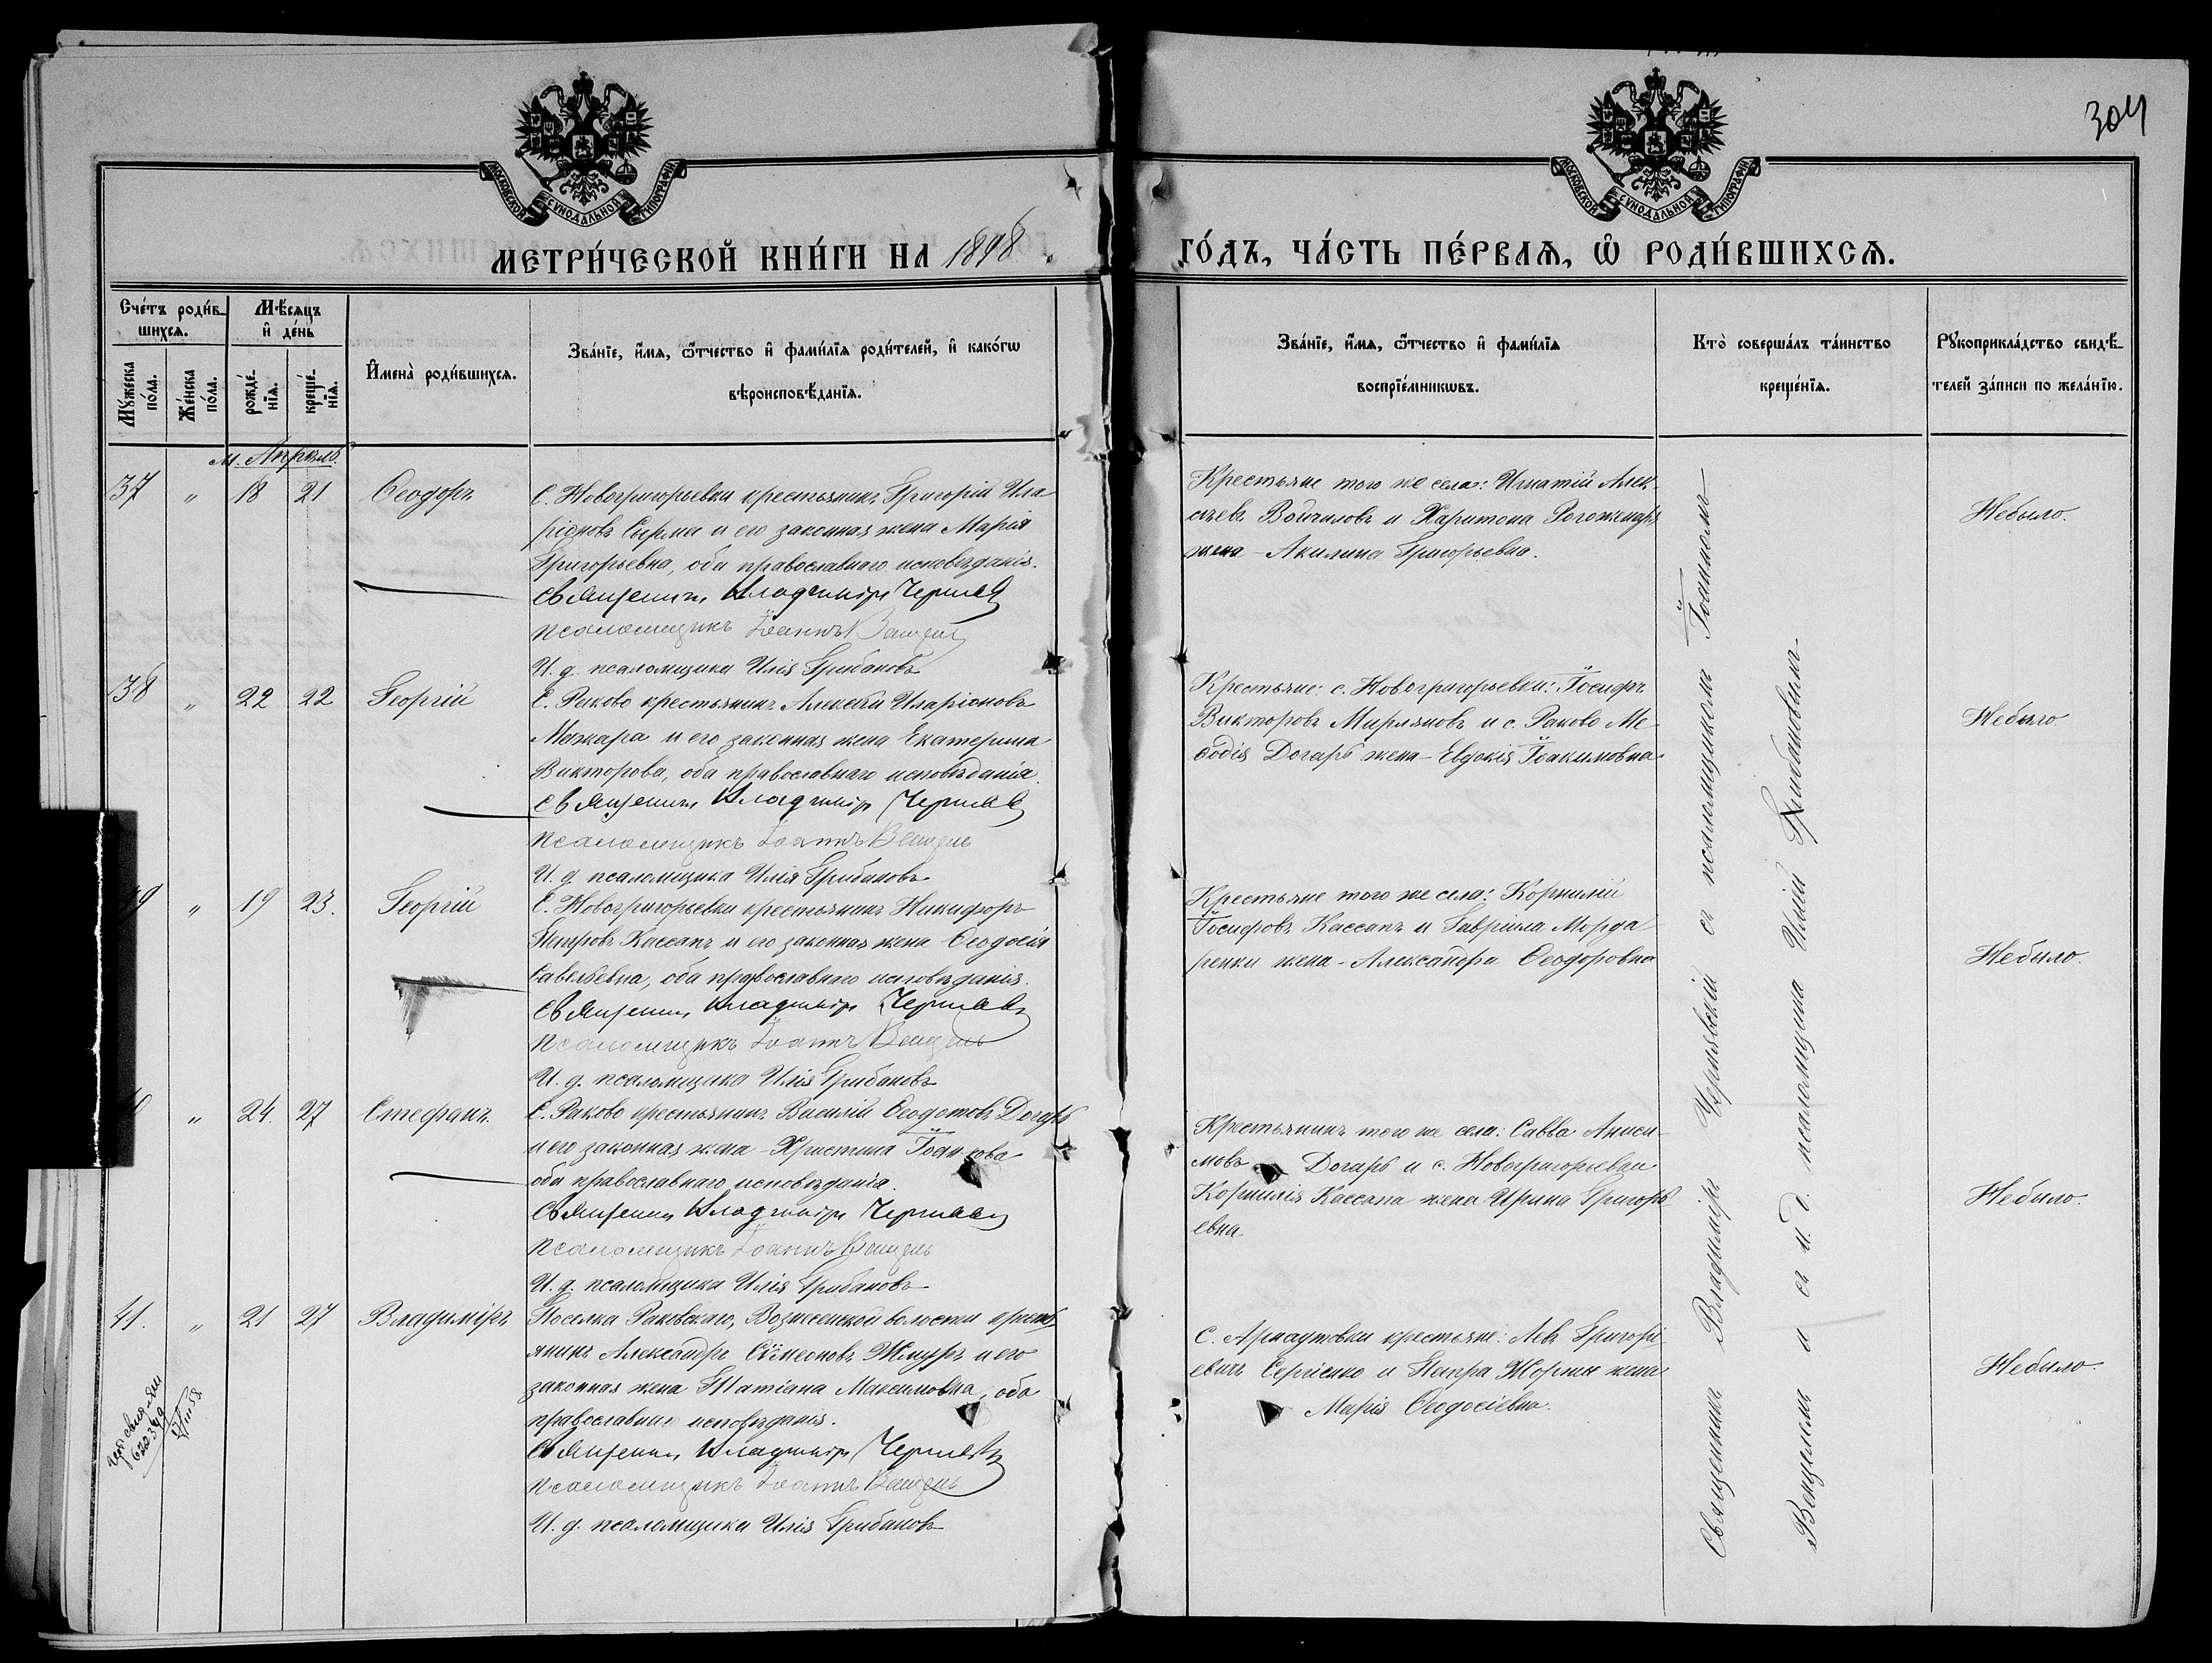 304
МОСКОВСКОЙ СѴНОДАЛЬНОЙ ТИПОГРАФІИ
МОСКОВСКОЙ СѴНОДАЛЬНОЙ ТИПОГРАФІИ
МЕТРИ́ЧЕСКОЙ КНИ́ГИ НА 1898 ГО́ДЪ, ЧА́СТЬ ПЕ́РВАѦ, Ѡ҆ РОДИ́ВШИХСѦ.
Сче́тъ роди́в-
шихсѧ.
Мѣ́сѧцъ
и҆ де́нь
Мꙋ́жеска
по́ла.
Же́нска
по́ла.
рожде́-
нїѧ.
креще́-
нїѧ.
И҆мена̀ роди́вшихсѧ.
Зва́нїе, и҆́мѧ, ѻ҆́тчество и҆ фами́лїѧ роди́телей, и҆ како́гѡ
вѣроисповѣ́данїѧ.
Зва́нїе, и҆́мѧ, ѻ҆́тчество и҆ фами́лїѧ
воспрїе́мникѡвъ.
Кто̀ соверша́лъ та́инство
креще́нїѧ.
Рꙋкоприкла́дство свидѣ́-
телей за́писи по жела́нїю.
м. Апрѣль.
37 " 18 21 Ѳеодоръ
С. Новогригорьевки крестьянинъ Григорій Ила-
ріоновъ Сырма и его законная жена Марія
Григорьевна, оба православнаго исповѣданія.
Священникъ Владиміръ Черняв
псаломщикъ Іоаннъ Венцель
И. д. псаломщика Илія Грибановъ
Крестьяне того же села: Игнатій Алек-
сѣевъ Войчиловъ и Харитона
жена - Акилина Григорьевна.
Небыло.
38 " 22 22 Георгій
С. Раково крестьянинъ Алексѣй Иларіоновъ
Можара и его законная жена Екатерина
Викторова, оба православнаго исповѣданія.
Священникъ Владиміръ Черняв
псаломщикъ Іоаннъ Венцель
И. д. псаломщика Илія Грибановъ
Крестьяне: с. Новогригорьевки: Іосифъ
Викторовъ Мирляновъ и с. Раково Ме-
ѳодія Догарь жена - Евдокія Іоакимовна.
Небыло
39 " 19 23. Георгій
С. Новогригорьевки крестьянинъ Никифоръ
Петровъ Кассапъ и его законная жена Ѳеодосія
Савельевна, оба православнаго исповѣданія.
Священникъ Владиміръ Черняв
псаломщикъ Іоаннъ Венцель
И. д. псаломщика Илія Грибановъ
Крестьяне того же села: Корнилій
Іосифовъ Кассапъ и Гавріила Морда-
ренки жена - Александра Ѳеодоровна
Небыло.
" 24. 27 Стефанъ.
С. Раково крестьянинъ Василій Ѳеодотовъ Догарь
и его законная жена - Христина
оба православнаго исповѣданія.
Священникъ Владиміръ Черняв
псаломщикъ Іоаннъ Венцель
И. д. псаломщика Илія Грибановъ
Крестьянинъ того же села: Савва Аниси-
мовъ Догарь и с. Новогригорьевки
Корнилія Кассапа жена Ирина Григорь-
евна
Небыло.
41. " 21 27 Владиміръ
Поселка Раковскаго, Вознесенской волости кресть-
янинъ Александръ Симеоновъ Жмуръ и его
законная жена Татіана Максимовна, оба
православнаго исповѣданія.
Священникъ Владиміръ Черняв
псаломщикъ Іоаннъ Венцель
И. д. псаломщика Илія Грибановъ
С. Арнаутовки крестьяне: Левъ Григорі-
евичъ Сергіенко и Петра Жоржи жена
Марія Ѳеодосіевна.
Небыло.
Священникъ Владиміръ Чернявскій съ псаломщикомъ Іоанномъ
Венцелемъ и съ и. д. псаломщика Иліей Грибановымъ